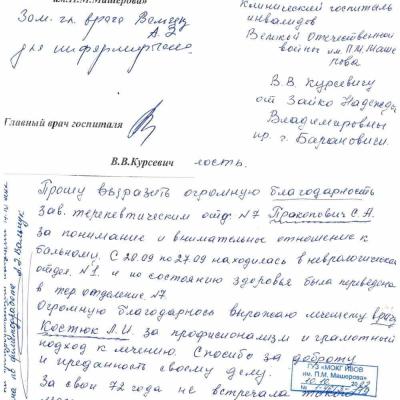 им.П.М.Машерова»
Зам. гл. врача Вальчук
А.Э
для информирования.
Клинический госпиталь
инвалидов
Великой Отечественной
войны им. П.М. Маше
рова
В.В. Курсевичу
от Зайко Надежды
Владимировны
пр. г. Барановичи.
Главный врач госпиталя
В.В.Курсевич
Прошу выразить огромную благодарность
зав. терепевтическим отд. №7 Прокопович С.А.
за понимание и внимательное отношение к
больному. С 20.09 по 27.09 находилась в неврологическом
отдел. №1. и по состоянию здоровье была переведена
в тер. отделение №7.
Огромную благодарнось выражаю лечащему врачу
Костюк Л.И. за професионализм и грамотный
подход к лечению. Спосибо за доброту
и преданность своему делу.
За свои 72 года не встречала такого
ГУЗ «МОКГ ИВОВ
им. П.М. Машерова»